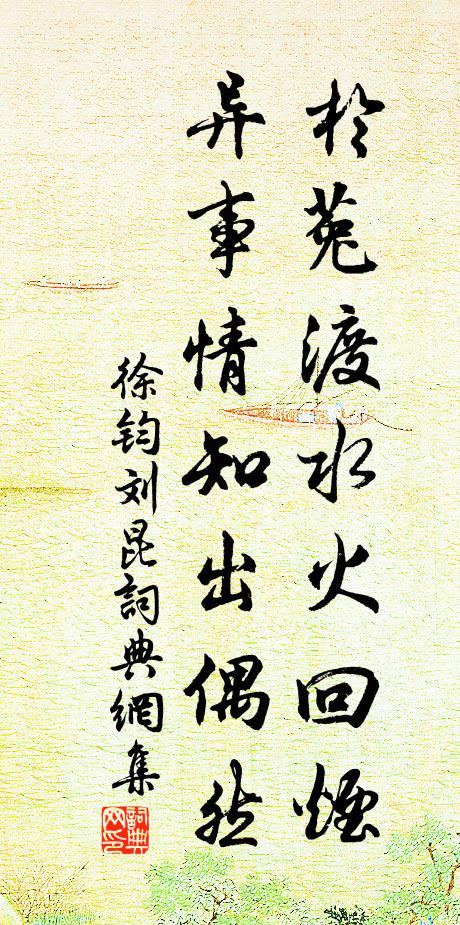 於菟渡水火回煙
异事情知出偶然
徐钧刘昆詞典網集
詞典网印